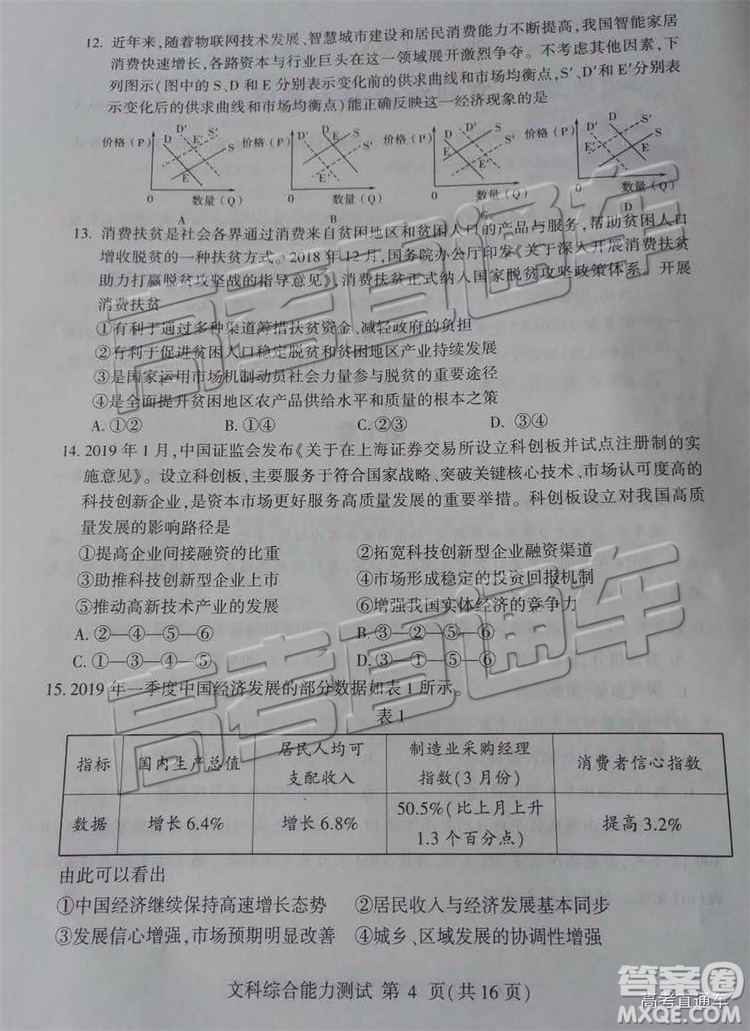 12. 近年来,随着物联网技术发展、智慧城市建设和居民消费能力不断提高,我国智能家居
消费快速增长,各路资本与行业巨头在这一领域展开激烈争夺。不考虑其他因素,下
列图示(图中的S、D和E分别表示变化前的供求曲线和市场均衡点,S′、D′和E′分别表
示变化后的供求曲线和市场均衡点)能正确反映这一经济现象的是
价格(P) D D′ S E′ S′ E 0 数量(Q)
价格(P) D′ D S S′ 0 数量(Q)
价格(P) D S′ S E 0 数量(Q)
价格(P) D′ S S′ E 0 数量(Q)
A B C D
13. 消费扶贫是社会各界通过消费来自贫困地区和贫困人口的产品与服务,帮助贫困人口
增收脱贫的一种扶贫方式。2018年12月,国务院办公厅印发《关于深入开展消费扶贫
助力打赢脱贫攻坚战的指导意见》,消费扶贫正式纳入国家脱贫攻坚政策体系。开展
消费扶贫
①有利于通过多种渠道筹措扶贫资金、减轻政府的负担
②有利于促进贫困人口稳定脱贫和贫困地区产业持续发展
③是国家运用市场机制动员社会力量参与脱贫的重要途径
④是全面提升贫困地区农产品供给水平和质量的关键之策
A. ①② B. ①④ C. ②③ D. ③④
14. 2019年1月,中国证监会发布《关于在上海证券交易所设立科创板并试点注册制的实
施意见》。设立科创板,主要服务于符合国家战略、突破关键核心技术、市场认可度高的
科技创新企业,是资本市场更好服务高质量发展的重要举措。科创板设立对我国高质
量发展的影响路径是
①提高企业间接融资的比重 ②拓宽科技创新型企业融资渠道
③助推科技创新型企业上市 ④市场形成稳定的投资回报机制
⑤推动高新技术产业的发展 ⑥增强我国实体经济的竞争力
A. ②—④—⑤—⑥ B. ③—②—⑤—⑥
C. ①—③—④—⑤ D. ③—①—④—⑥
15. 2019年一季度中国经济发展的部分数据如表1所示。
表1
指标 国内生产总值 居民人均可支配收入 制造业采购经理指数(3月份) 消费者信心指数
数据 增长6.4% 增长6.8% 50.5%(比上月上升1.3个百分点) 提高3.2%
由此可以看出
①中国经济继续保持高速增长态势 ②居民收入与经济发展基本同步
③发展信心增强,市场预期明显改善 ④城乡、区域发展的协调性增强
文科综合能力测试 第 4 页(共16页)
高考直通车
答案圈
高考直通车
MXQE.COM